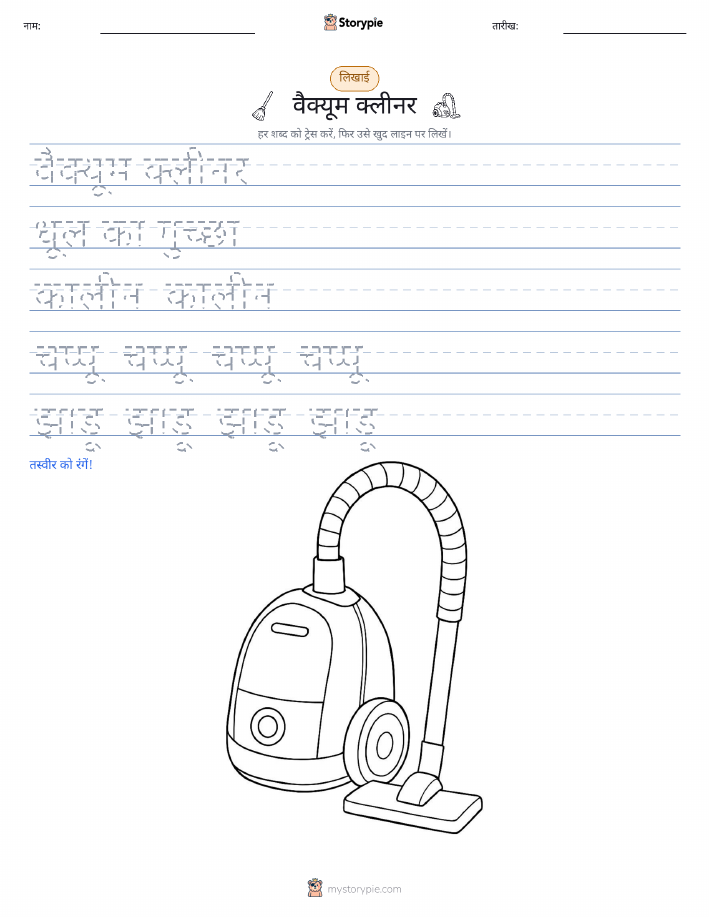 नाम:
Storypie
तारीख:
लिखाई
वैक्यूम क्लीनर
हर शब्द को ट्रेस करें, फिर उसे खुद लाइन पर लिखें।
वैक्यूम क्लीनर
धूल का गुच्छा
कालीन कालीन
चप्पू चप्पू चप्पू चप्पू
झाड़ू झाड़ू झाड़ू झाड़ू
तस्वीर को रंगें!
mystorypie.com